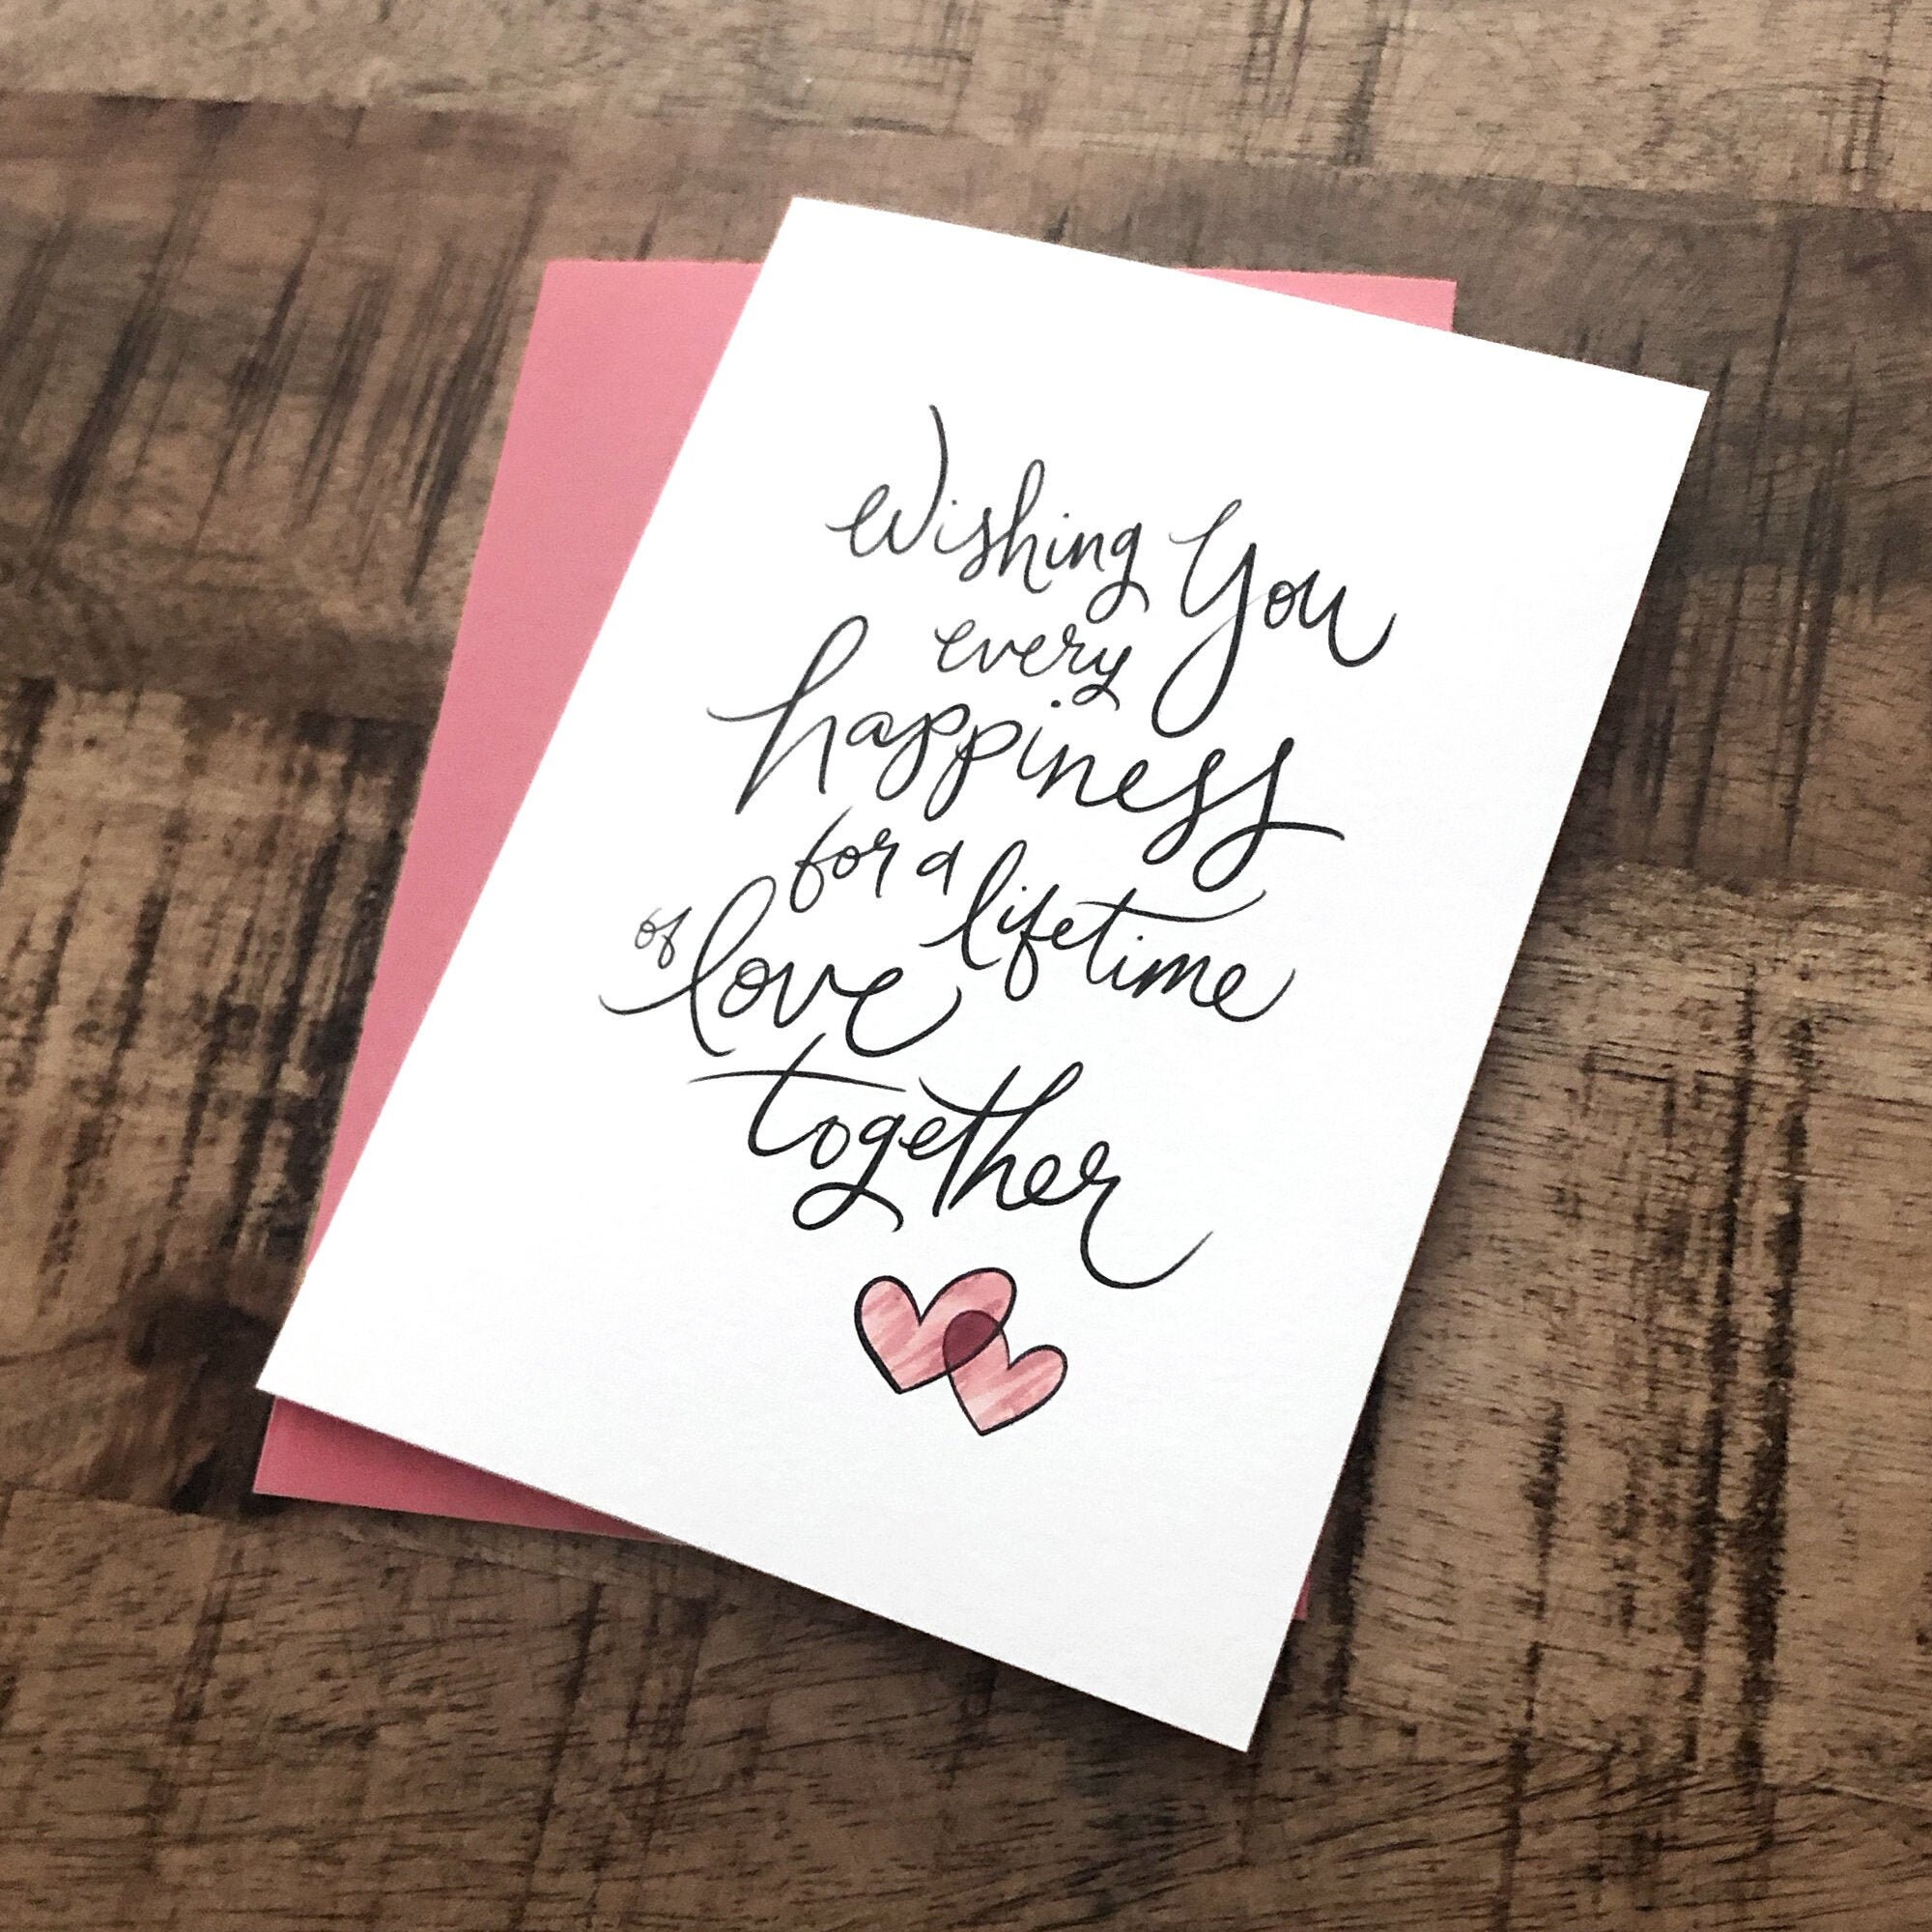 Wishing You
every
happiness
for a lifetime
of love
together